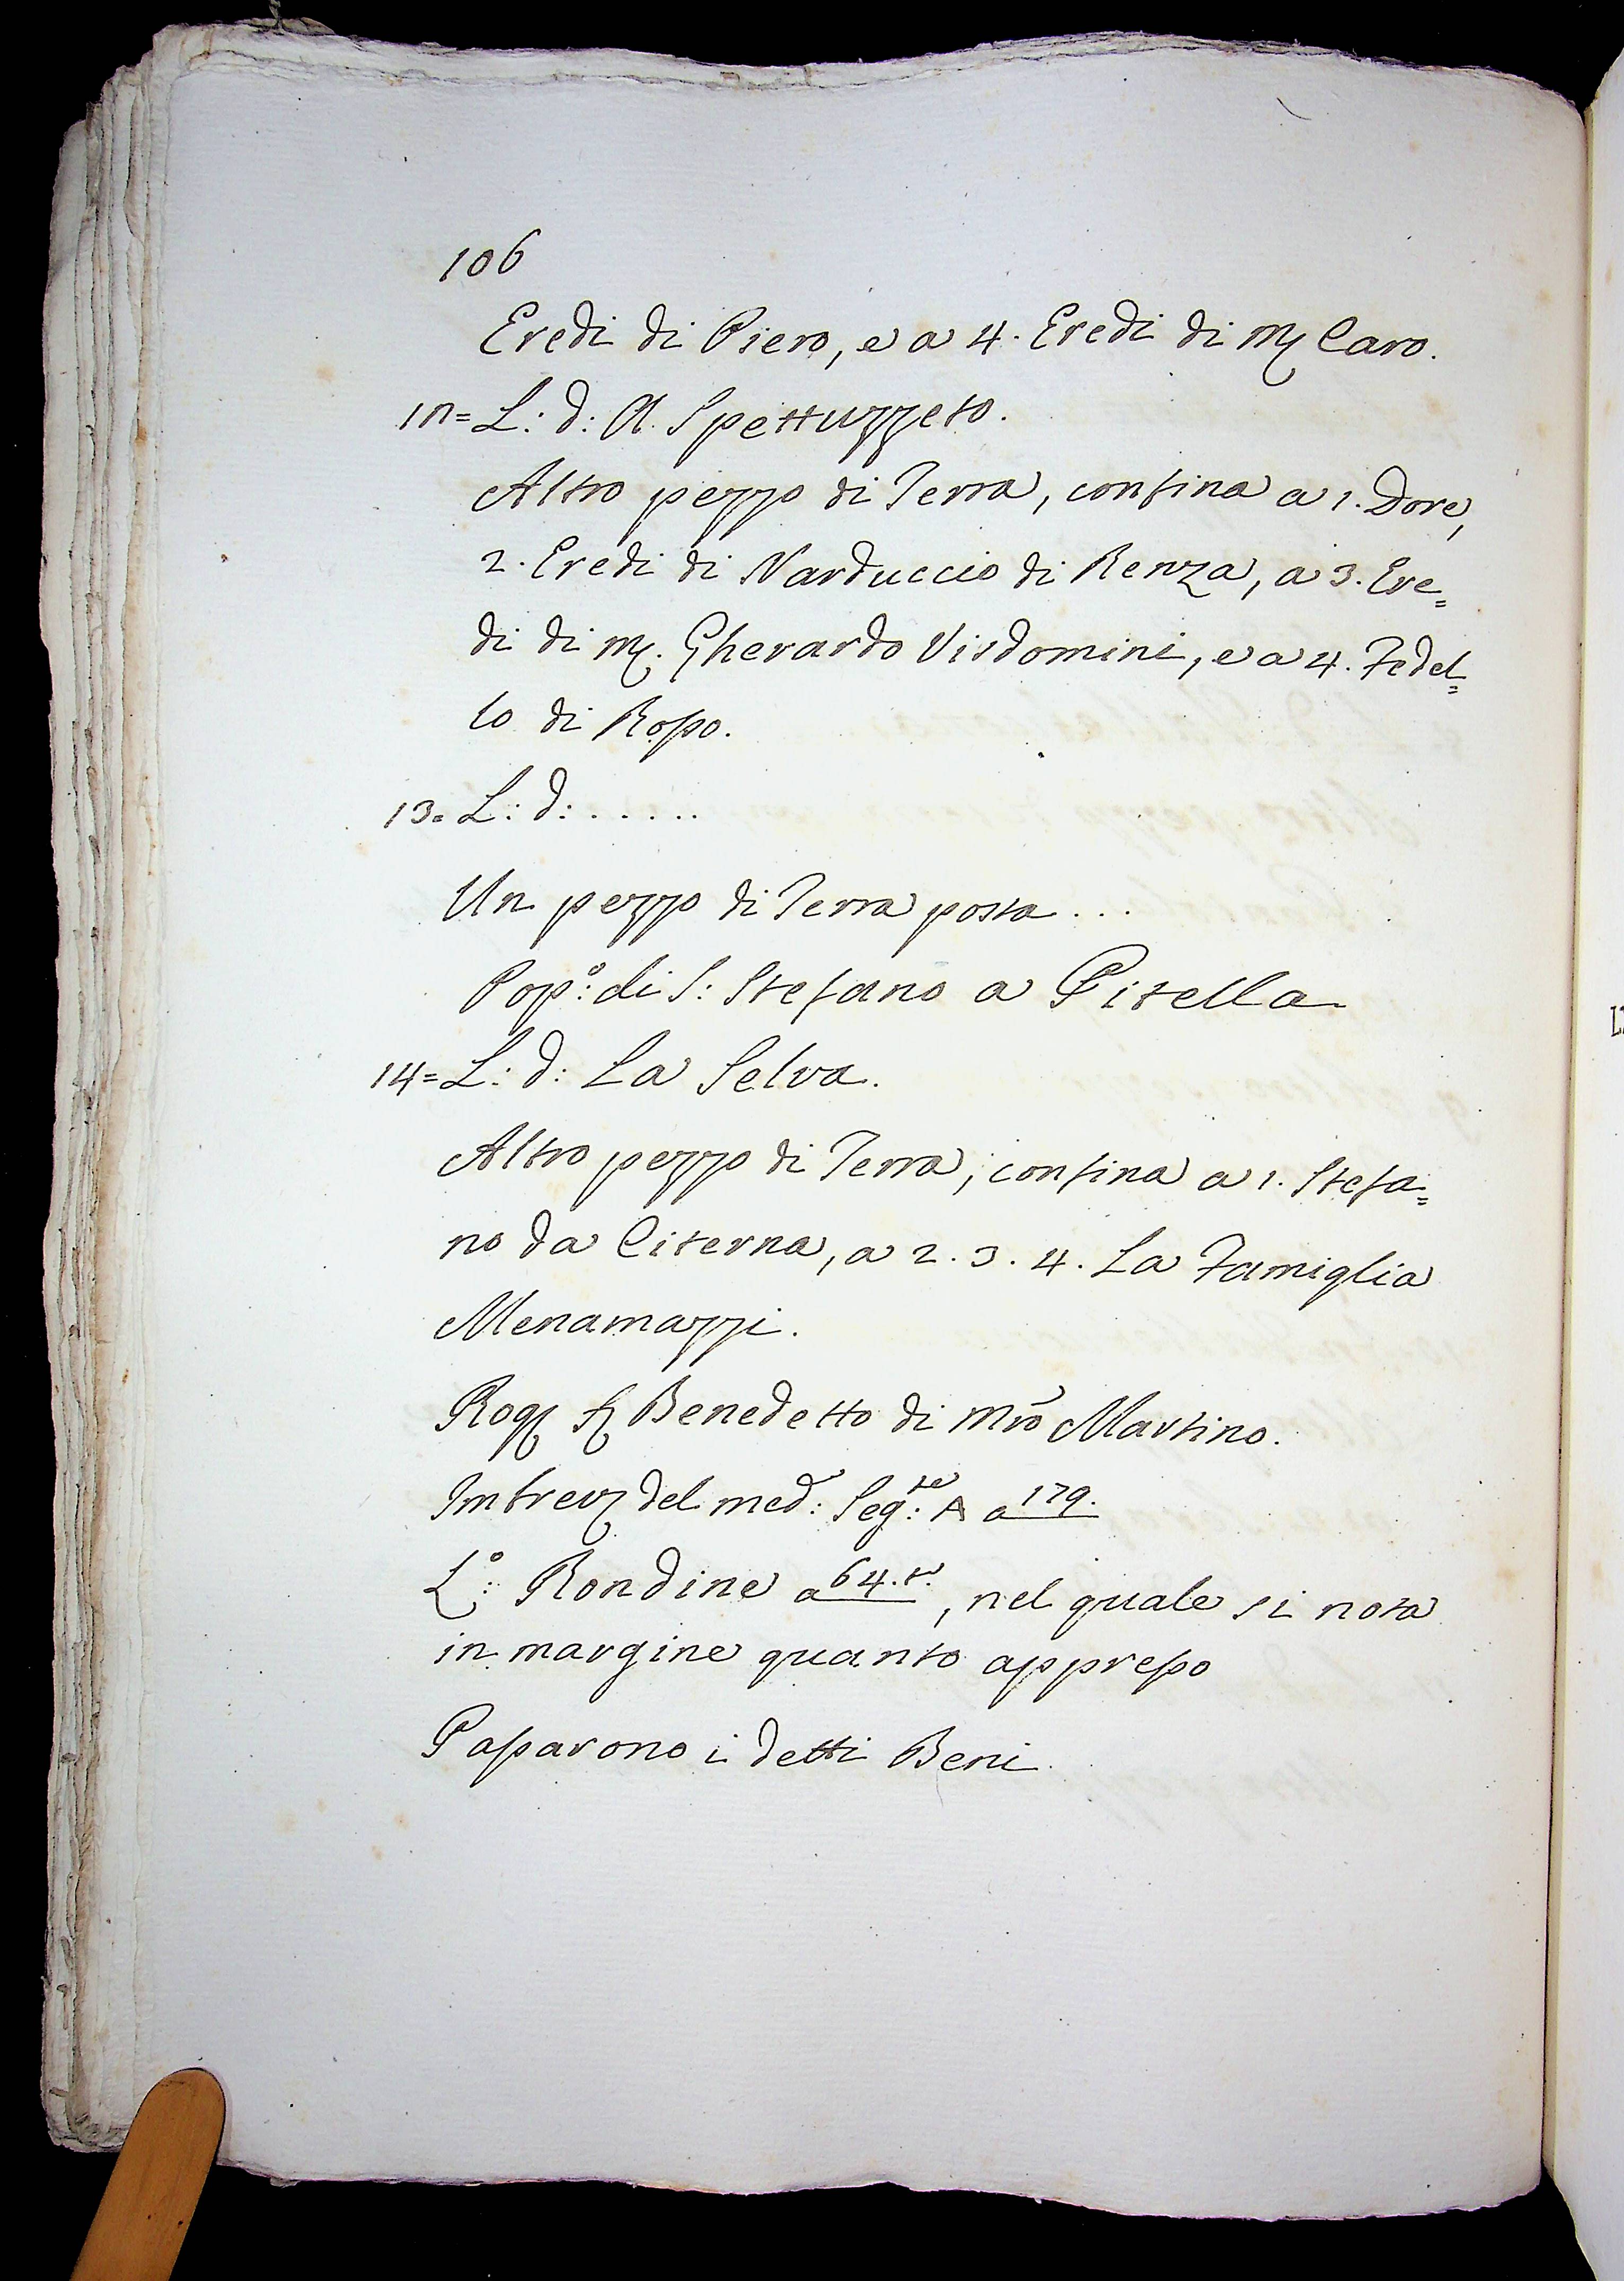 106
Eredi di Piero, e a 4. Eredi di M Caro.
12= L: d: A Spettuzzeto.
Altro pezzo di Terra, confina a 1. Dore,
2. Eredi di Narduccio di Renza, a 3. Ere=
di di M. Gherardo Visdomini, e a 4. Fedel=
lo di Rosso.
13= L: d: . . . . .
Un pezzo di Terra posta . . .
Pop:º di S: Stefano a Pitella
14= L: d: La Selva.
Altro pezzo di Terra, confina a 1. Stefa=
no da Citerna, a 2. 3. 4. La Famiglia
Menamazzi.
Rog Benedetto di Mrõ Martino.
del med: Seg:te A a 179.
L:º Rondine a 64.t., nel quale si nota
in margine quanto appresso
Passarono i detti Beni